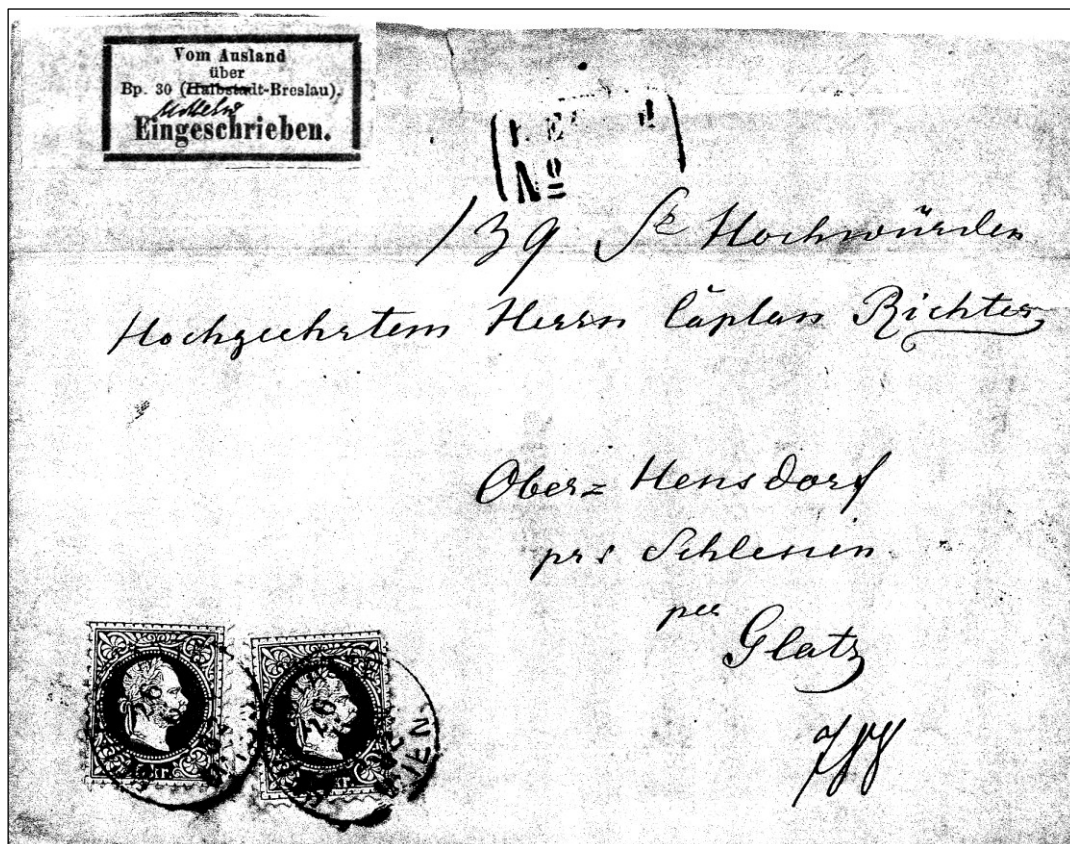 Vom Ausland
über
Bp. 30 (Halbstadt-Breslau).
Eingeschrieben.
No
139 Sr Hochwürden
Hochgeehrtem Herrn Caplan Richter
Ober= Hensdorf
prs Schlesien
per
Glatz
WIEN